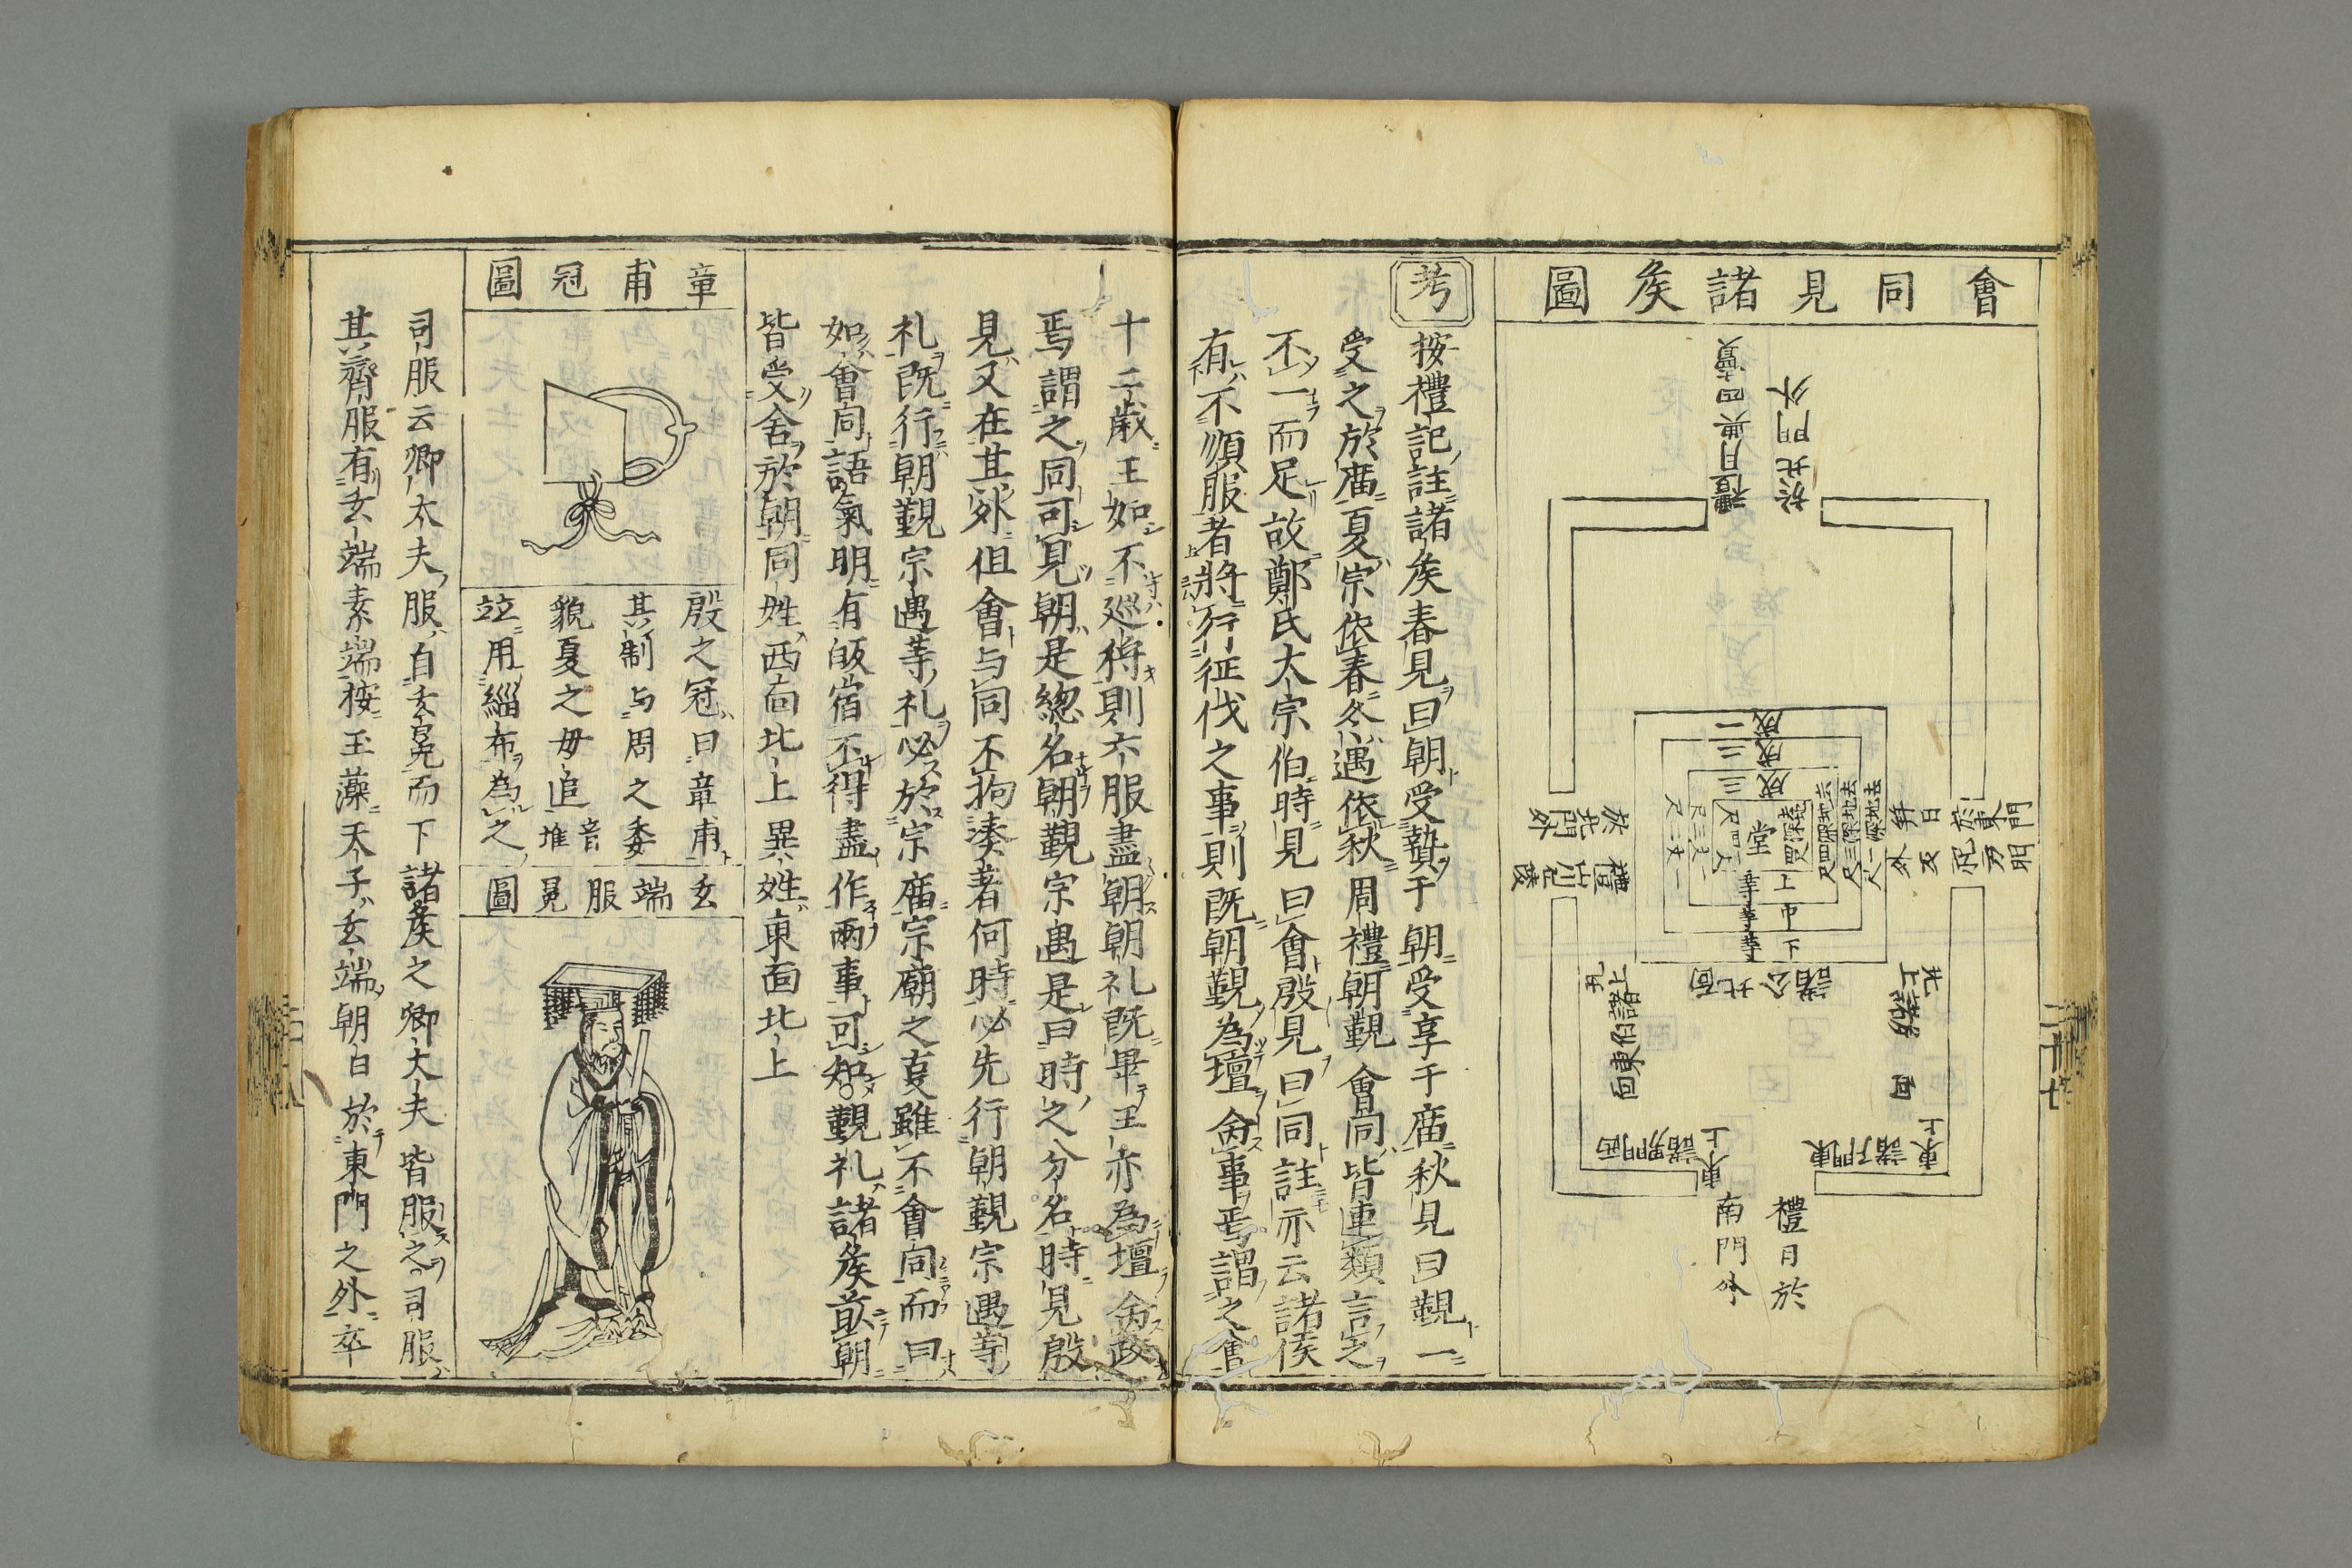 會同見諸矦圖
禮月與四瀆
於北門外
禮日於東門外
禮山川丘陵
於西門外
一成
二成
三成
堂
上等
中等
下等
諸公北面
諸伯東面
北上
諸男門西
東上
諸子門東
東上
禮月於
南門外
考
按禮記註諸矦春見曰朝受贄于朝受享于庿秋見曰覲一
受之於庿夏宗依春冬遇依秋周禮朝覲會同皆連類言之
不一而足故鄭氏大宗伯時見曰會殷見曰同註亦云諸侯
有不順服者將行征伐之事則既朝覲為壇命事焉謂之會
二十七
十二歳王如不巡狩則六服盡朝朝礼既畢王亦為壇命政
焉謂之同可見朝是總名朝覲宗遇是曰時之分名時見殷
見又在其外但會与同不拘湊著何時必先行朝覲宗遇等
礼既行朝覲宗遇等礼必於宗庿宗廟之亥雖不會同而曰
如會同語氣明有皈宿不得盡作兩事可知覲礼諸矦歬朝
皆受舍於朝同姓西面北上異姓東面北上
章甫冠圖
殷之冠曰章甫
其制与周之委
貌夏之毋追音堆
竝用緇布為之
玄端服冕圖
司服云卿大夫服自玄冕而下諸矦之卿大夫皆服之司服
其齊服有玄端素端按玉藻天子玄端朝日於東門之外卒